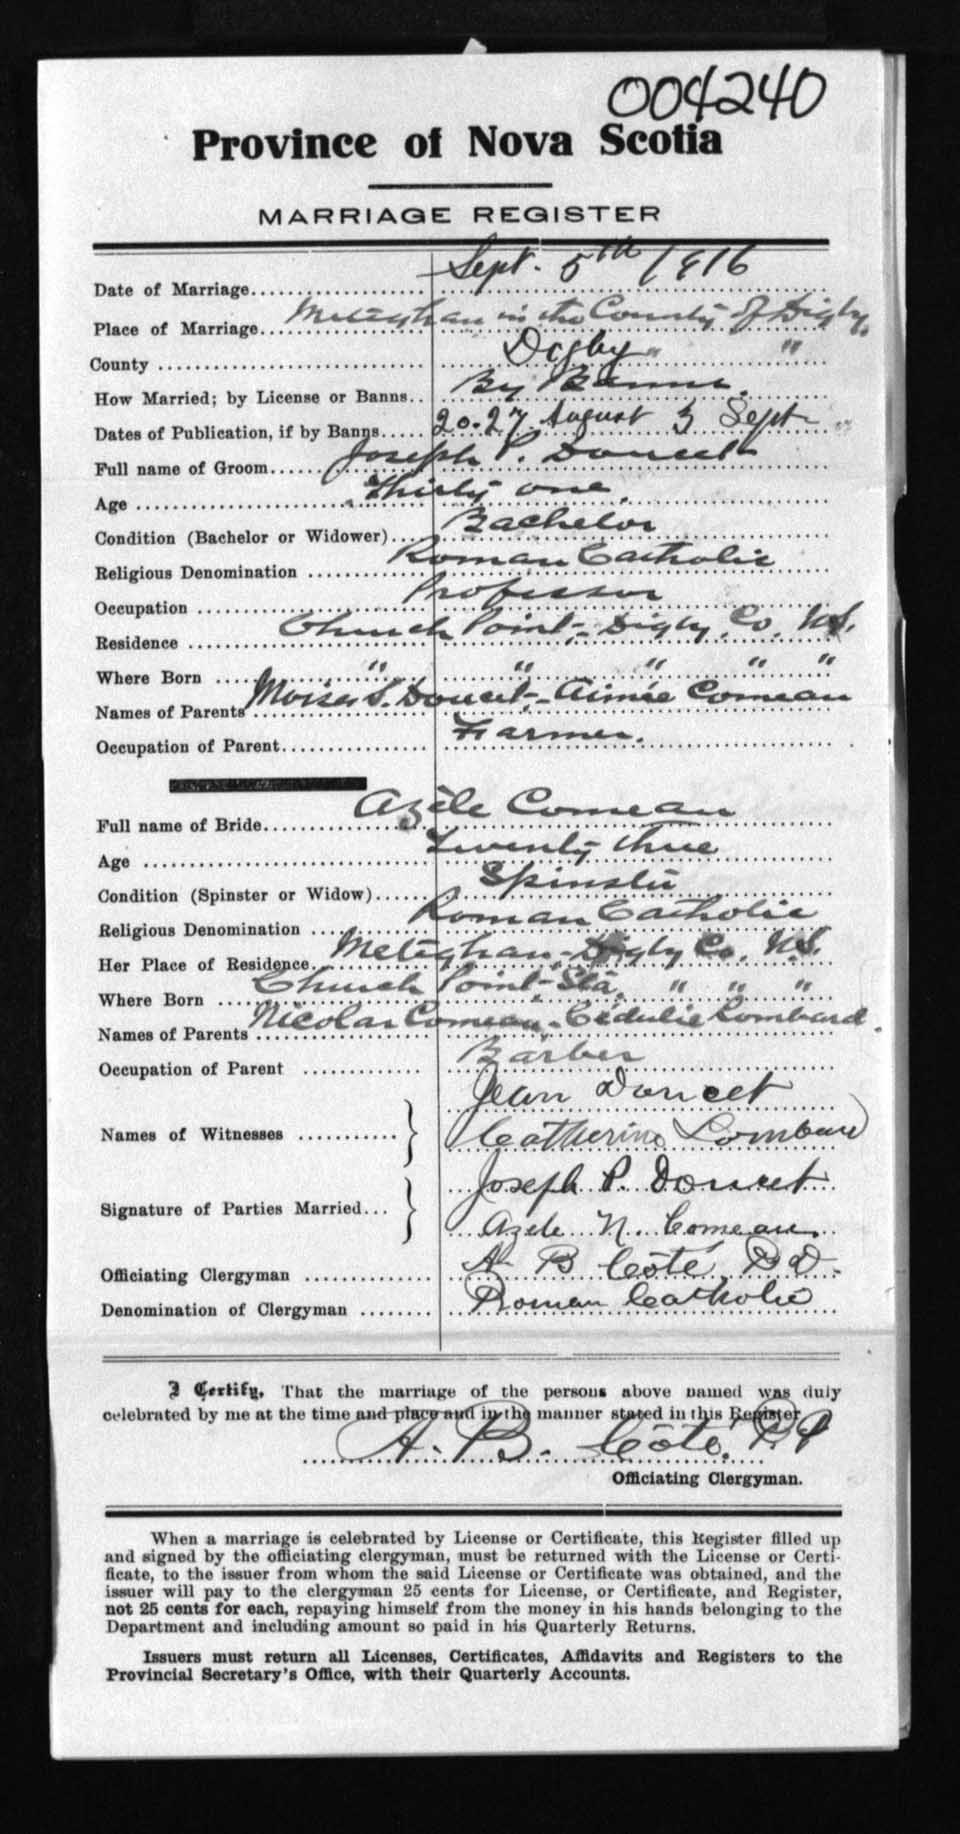 004240
Province of Nova Scotia
MARRIAGE REGISTER
Date of Marriage Sept. 5th 1916
Place of Marriage Meteghan in the County of Digby,
County Digby " "
How Married; by License or Banns By Banns.
Dates of Publication, if by Banns 20. 27 August 3 Sept "
Full name of Groom Joseph P. Doucet
Age Thirty one.
Condition (Bachelor or Widower) Bachelor
Religious Denomination Roman Catholic
Occupation Professor
Residence Church Point, Digby, Co. N.S.
Where Born " " " " "
Names of Parents Moise S. Doucet - Aimée Comeau
Occupation of Parent Farmer.
Full name of Bride Azèle Comeau
Age Twenty three
Condition (Spinster or Widow) Spinster
Religious Denomination Roman Catholic
Her Place of Residence Meteghan, Digby Co. N.S.
Where Born Church Point, Sta. " " "
Names of Parents Nicolas Comeau - Cédulie Lombard.
Occupation of Parent Barber
Names of Witnesses } Jean Doucet
Catherine Lombard
Signature of Parties Married } Joseph P. Doucet
Azele N. Comeau
Officiating Clergyman A. B. Côté,
Denomination of Clergyman Roman Catholic
I Certify, That the marriage of the persons above named was duly
celebrated by me at the time and place and in the manner stated in this Register
A. B. Côté, P.P.
Officiating Clergyman.
When a marriage is celebrated by License or Certificate, this Register filled up
and signed by the officiating clergyman, must be returned with the License or Certi-
ficate, to the issuer from whom the said License or Certificate was obtained, and the
issuer will pay to the clergyman 25 cents for License, or Certificate, and Register,
not 25 cents for each, repaying himself from the money in his hands belonging to the
Department and including amount so paid in his Quarterly Returns.
Issuers must return all Licenses, Certificates, Affidavits and Registers to the
Provincial Secretary's Office, with their Quarterly Accounts.